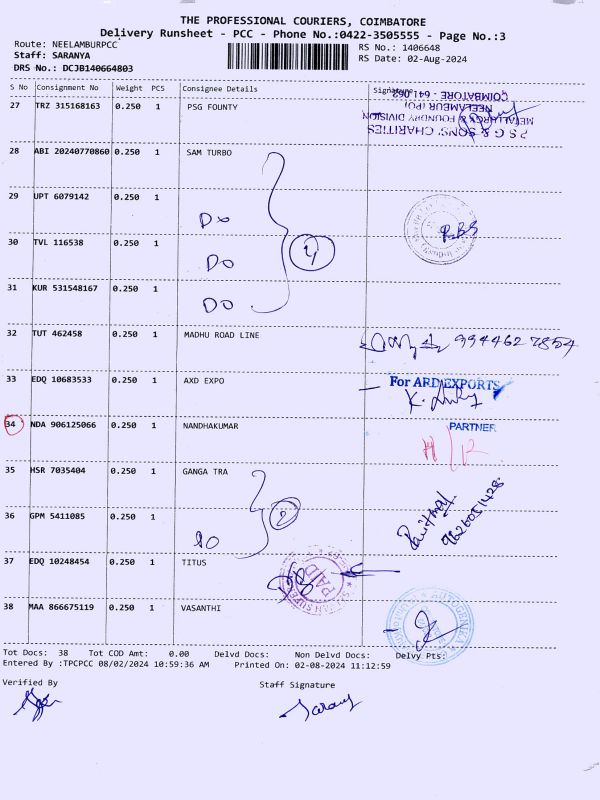 THE PROFESSIONAL COURIERS, COIMBATORE
Delivery Runsheet - PCC - Phone No.:0422-3505555 - Page No.:3
Route: NEELAMBURPCC
Staff: SARANYA
DRS No.: DCJB140664803
RS No.: 1406648
RS Date: 02-Aug-2024
S No Consignment No Weight PCS Consignee Details Signature
27 TRZ 315168163 0.250 1 PSG FOUNTY
P S G & SONS' CHARITIES
METALLURGY & FOUNDRY DIVISION
NEELAMBUR (PO)
COIMBATORE - 641 062
28 ABI 20240770860 0.250 1 SAM TURBO
29 UPT 6079142 0.250 1
DO
30 TVL 116538 0.250 1
DO
4
31 KUR 531548167 0.250 1
DO
32 TUT 462458 0.250 1 MADHU ROAD LINE
9944627854
33 EDQ 10683533 0.250 1 AXD EXPO
For ARD EXPORTS
34 NDA 906125066 0.250 1 NANDHAKUMAR
PARTNER
35 HSR 7035404 0.250 1 GANGA TRA
2
36 GPM 5411085 0.250 1
DO
37 EDQ 10248454 0.250 1 TITUS
38 MAA 866675119 0.250 1 VASANTHI
Tot Docs: 38 Tot COD Amt: 0.00 Delvd Docs: Non Delvd Docs: Delvy Pts:
Entered By :TPCPCC 08/02/2024 10:59:36 AM Printed On: 02-08-2024 11:12:59
Verified By
Staff Signature
Saranya